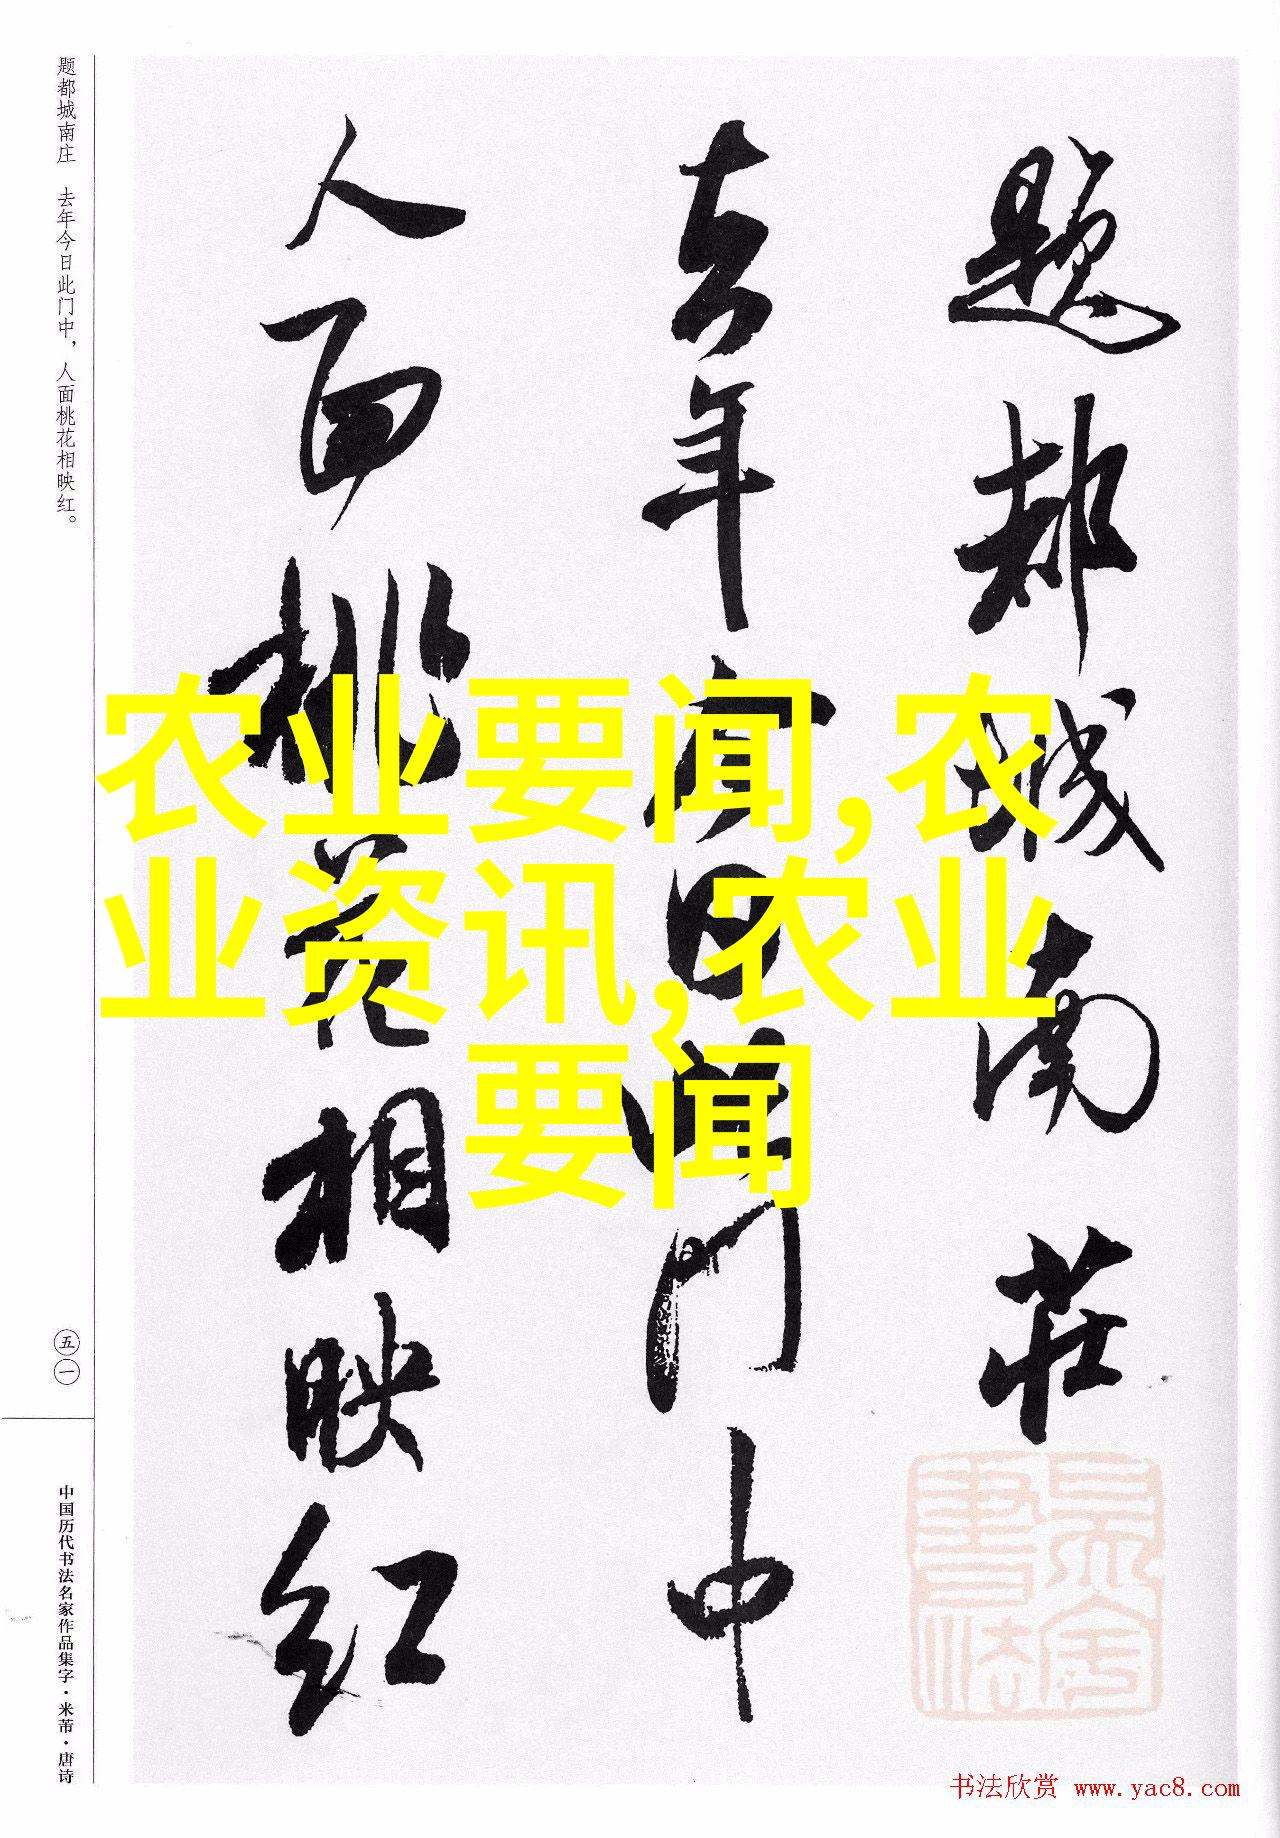 题都城南庄
去年今日此门中
人面桃花相映红
题都城南庄　去年今日此门中，人面桃花相映红。
五一
中国历代书法名家作品集字·米芾·唐诗
农业要闻,农
业资讯,农业
要闻
书法欣赏 www.yac8.com